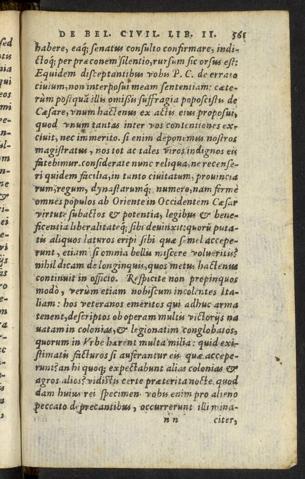 DE BEL. CIVIL. LIB. II. 561
habere, eaq; senatus consulto confirmare, indi-
ctoq; per præconem silentio, rursum sic orsus est:
Equidem disceptantibus vobis P. C. de errato
ciuium, non interposui meam sententiam: cæte-
rùm posteaquam illi omissis suffragia poposcistis de
Cæsare, vnum hactenus ex actis eius proposui,
quod vnum tantas inter vos contentiones ex-
ciuit, nec immerito. si enim deponemus nostra
magistratus, nos tot ac tales viros indignos eis
fatebimur. considerate nunc reliqua, ne recense-
ri quidem facilia, in tanto ciuitatum, prouincia
rum, regum, dynastarumq; numero, nam fermè
omnes populos ab Oriente in Occidentem Cæsar
virtute subactos & potentia, legibus & bene-
ficentia liberalitateq; sibi deuinxit: quorũ puta-
tis aliquos laturos eripi sibi quæ semel accepe-
runt, etiam si omnia bellis miscere volueritis?
nihil dicam de longinquis, quos metus hactenus
continuit in officio. Respicite non propinquos
modo, verùm etiam nobiscum incolentes Ita-
liam: hos veteranos emeritos qui adhuc arma
tenent, descriptos ob operam multis victorijs na
uatam in colonias, & legionatim conglobatos,
quorum in Vrbe hærent multa milia: quid exi-
stimatis facturos si auferantur eis quæ accepe-
runt? an hi quoq; expectabunt alias colonias &
agros alios? vidistis certè præterita nocte. quod
dam huius rei specimen. vobis enim pro alieno
peccato deprecantibus, occurrerunt illi mina-
n n citer,